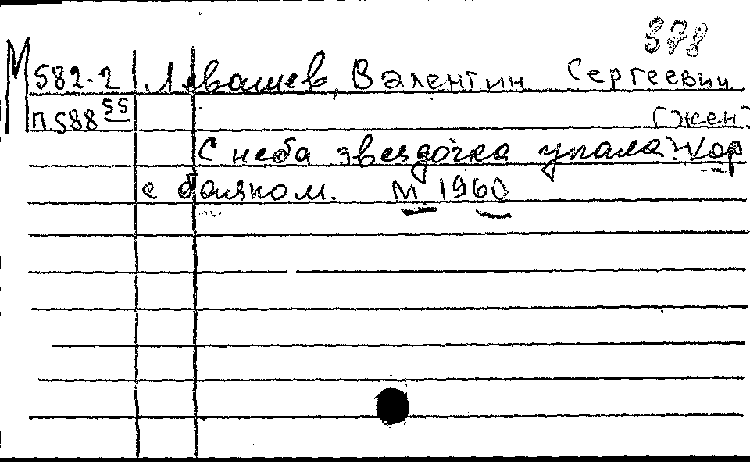 378
М 582-2 Левашев, Валентин Сергеевич
П 588 55 [жен.]
С неба звездочка упала. Хор
с баяном. М 1960